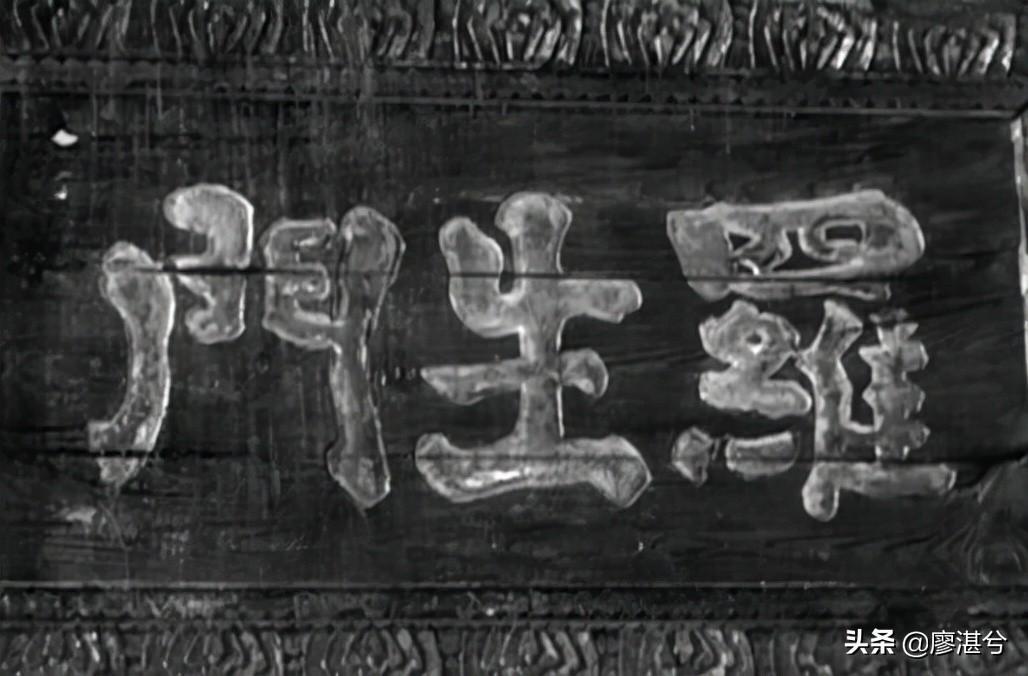 羅生門
头条 @廖湛兮